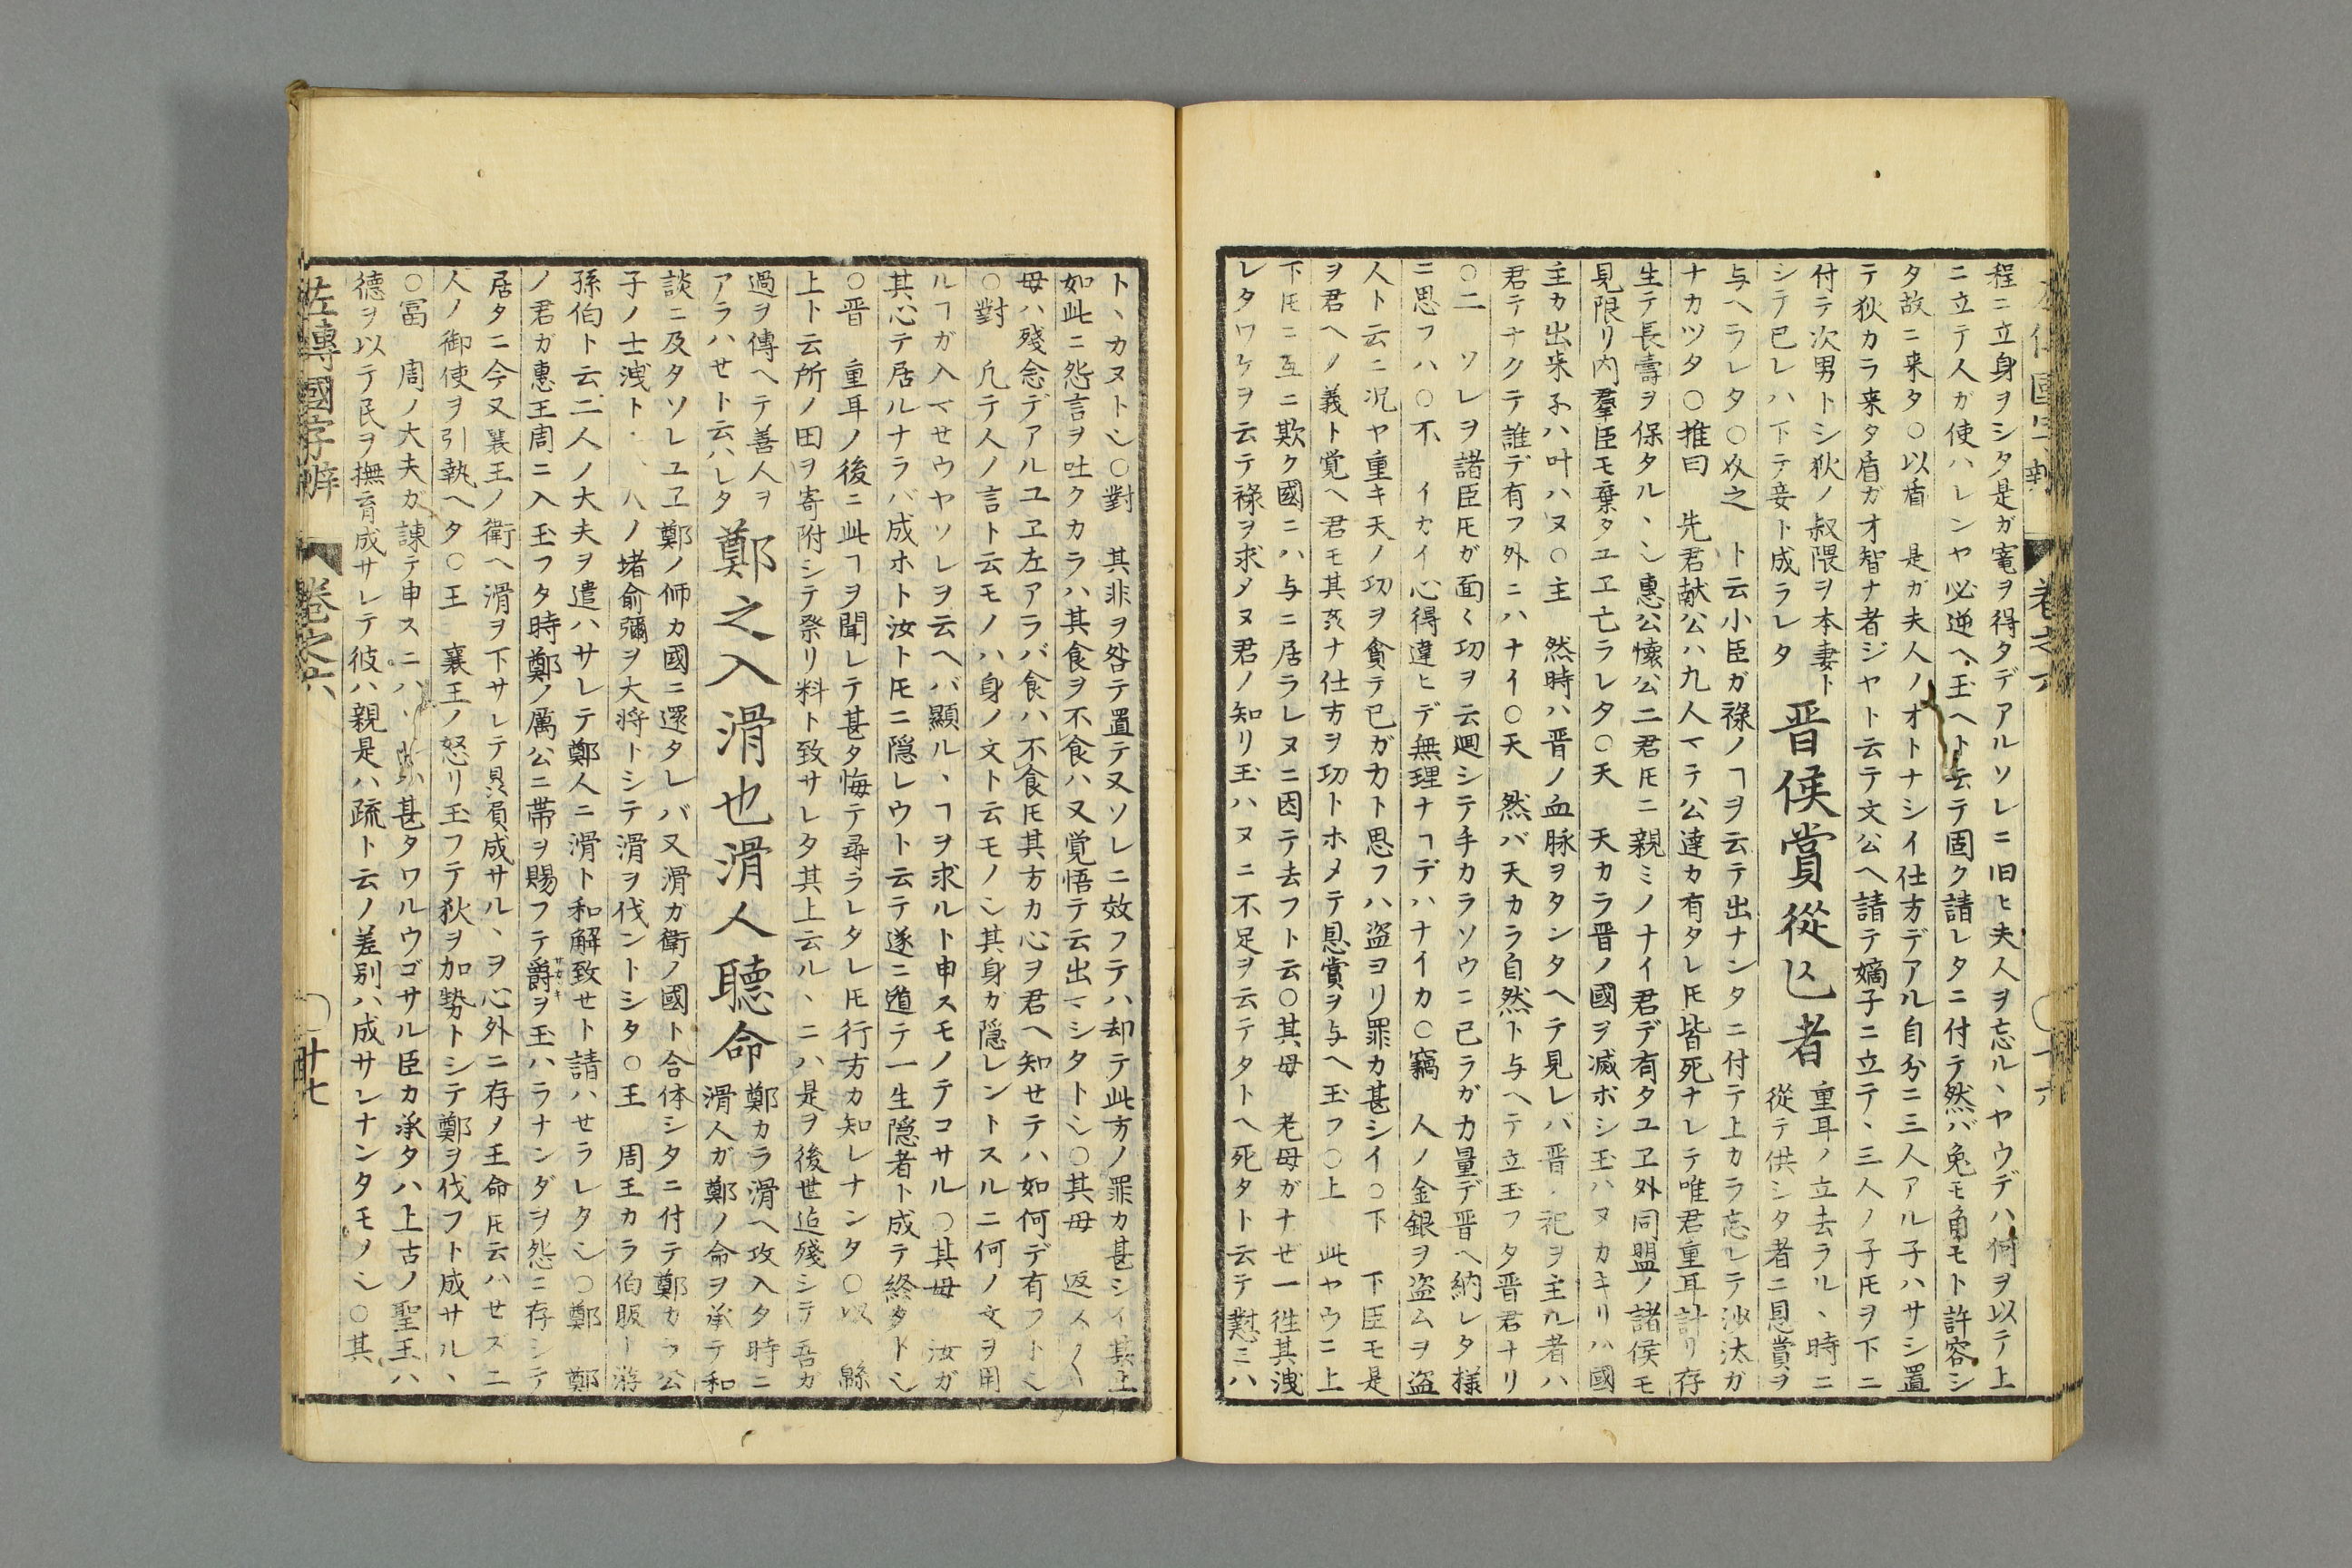 程ニ立身ヲシタ是ガ寵ヲ得タデアルソレニ旧ヒ夫人ヲ忘ル、ヤウデハ何ヲ以テ上
ニ立テ人ガ使ハレンヤ必逆ヘ玉ヘト云テ固ク請レタニ付テ然バ兔モ角モト許容シ
タ故ニ来タ○以盾 是ガ夫人ノオトナシイ仕方デアル自分ニ三人アル子ハサシ置
テ狄カラ来タ盾ガオ智ナ者ジヤト云テ文公ヘ請テ嫡子ニ立テ、三人ノ子𪜈ヲ下ニ
付テ次男トシ狄ノ叔隗ヲ本妻ト
シテ已レハ下テ妾ト成ラレタ
晋侯賞從亾者
重耳ノ立去ラル、時ニ
從テ供シタ者ニ恩賞ヲ
与ヘラレタ○𠬧之 ト云小臣ガ禄ノヿヲ云テ出ナンタニ付テ上カラ忘レテ沙汰ガ
ナカツタ○推曰 先君献公ハ九人マテ公達カ有タレ𪜈皆死ナレテ唯君重耳計リ存
生テ長壽ヲ保タル、𪜀惠公懷公二君𪜈ニ親ミノナイ君デ有タユヱ外同盟ノ諸侯モ
見限リ内羣臣モ棄タユヱ亡ラレタ○天 天カラ晋ノ國ヲ滅ボシ玉ハヌカキリハ國
主カ出来子ハ叶ハヌ○主 然時ハ晋ノ血脉ヲタンタヘテ見レバ晋ノ祀ヲ主ル者ハ
君テナクテ誰デ有フ外ニハナイ○天 然バ天カラ自然ト与ヘテ立玉フタ晋君ナリ
○二 ソレヲ諸臣𪜈ガ面〱功ヲ云廻シテ手カラソウニ已ラガ力量デ晋ヘ納レタ様
ニ思フハ○不 イカイ心得違ヒデ無理ナヿデハナイカ○竊 人ノ金銀ヲ盗ムヲ盗
人ト云ニ况ヤ重キ天ノ功ヲ貪テ已ガ力ト思フハ盗ヨリ罪カ甚シイ○下 下臣モ是
ヲ君ヘノ義ト覚ヘ君モ其姦ナ仕方ヲ功トホメテ恩賞ヲ与ヘ玉フ○上 此ヤウニ上
下𪜈ニ互ニ欺ク國ニハ与ニ居ラレヌニ因テ去フト云○其母 老母ガナゼ一徃其洩
レタワケヲ云テ禄ヲ求メヌ君ノ知リ玉ハヌニ不足ヲ云テタトヘ死タト云テ懟ミハ
ト、カヌト𪜀○對 其非ヲ咎テ置テ又ソレニ效フテハ却テ此方ノ罪カ甚シイ其上
如此ニ怨言ヲ吐クカラハ其食ヲ不食ハ又覚悟テ云出マシタト𪜀○其母 返
母ハ殘念デアルユヱ左アラバ食ハ不食𪜈其方カ心ヲ君ヘ知セテハ如何デ有フト𪜀
○對 凢テ人ノ言ト云モノハ身ノ文ト云モノ𪜀其身ガ隠レントスルニ何ノ文ヲ用
ルヿガ入マセウヤソレヲ云ヘバ顯ル、ヿヲ求ルト申スモノテコサル○其母 汝ガ
其心テ居ルナラバ成ホト汝ト𪜈ニ隠レウト云テ遂ニ遁テ一生隠者ト成テ終タト𪜀
○晋 重耳ノ後ニ此ヿヲ聞レテ甚タ悔テ尋ラレタレ𪜈行方カ知レナンタ○以 緜
上ト云所ノ田ヲ寄附シテ祭リ料ト致サレタ其上云ル、ニハ是ヲ後世迠殘シテ吾カ
過ヲ傳ヘテ善人ヲ
アラハせト云ハレタ
鄭之入滑也滑人聽命
鄭カラ滑ヘ攻入タ時ニ
滑人ガ鄭ノ命ヲ承テ和
談ニ及タソレユヱ鄭ノ師カ國ニ還タレバ又滑ガ衛ノ國ト合体シタニ付テ鄭カラ公
子ノ士洩ト ハノ堵俞彌ヲ大将トシテ滑ヲ伐ントシタ○王 周王カラ伯服ト游
孫伯ト云二人ノ大夫ヲ遣ハサレテ鄭人ニ滑ト和解致せト請ハせラレタ𪜀○鄭 鄭
ノ君ガ惠王周ニ入玉フタ時鄭ノ厲公ニ帯ヲ賜フテ爵ヲ玉ハラナンダヲ怨ニ存シテ
居タニ今又襄王ノ衛ヘ滑ヲ下サレテ贔屓成サル、ヲ心外ニ存ノ王命𪜈云ハせズ二
人ノ御使ヲ引執ヘタ○王 襄王ノ怒リ玉フテ狄ヲ加勢トシテ鄭ヲ伐フト成サル、
○冨 周ノ大夫ガ諌テ申スニハ 甚タワルウゴサル臣カ承タハ上古ノ聖王ハ
德ヲ以テ民ヲ撫育成サレテ彼ハ親是ハ疏ト云ノ差别ハ成サレナンタモノ𪜀○其
左傳國字辨 卷之六 十七